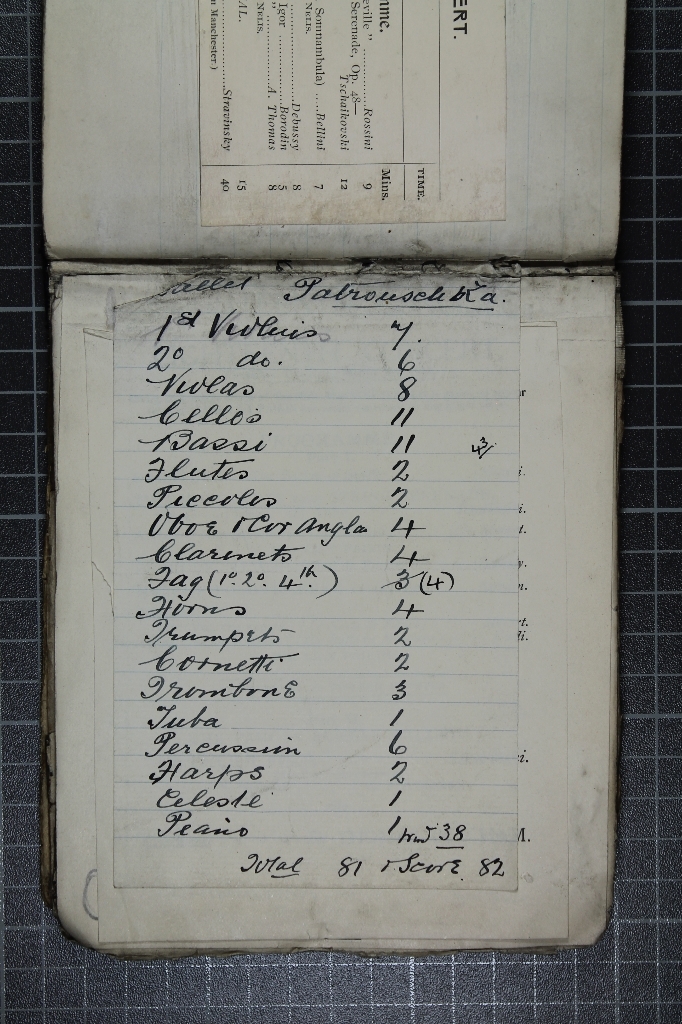 ERT.
TIME.
mme. Mins.
eville " Rossini 9
Serenade, Op. 48—
Tschaikovski 12
Somnambula) Bellini 7
NELIS.
Debussy 8
Igor Borodin 5
" A. Thomas 8
NELIS.
AL. 15
Stravinsky 40
n Manchester.)
Ballet Patrouschka.
1st Violins 7.
2o do. 6
Violas 8
Cellos 11
Bassi 11 43
Flutes 2
Piccolos 2
Oboe & Cor Angla 4
Clarinets 4
Fag (1o. 2o. 4th.) 3 (4)
Horns 4
Trumpets 2
Cornetti 2
Trombone 3
Tuba 1
Percussion 6
Harps 2
Celeste 1
Peano 1 wnd 38
Total 81 & Score 82